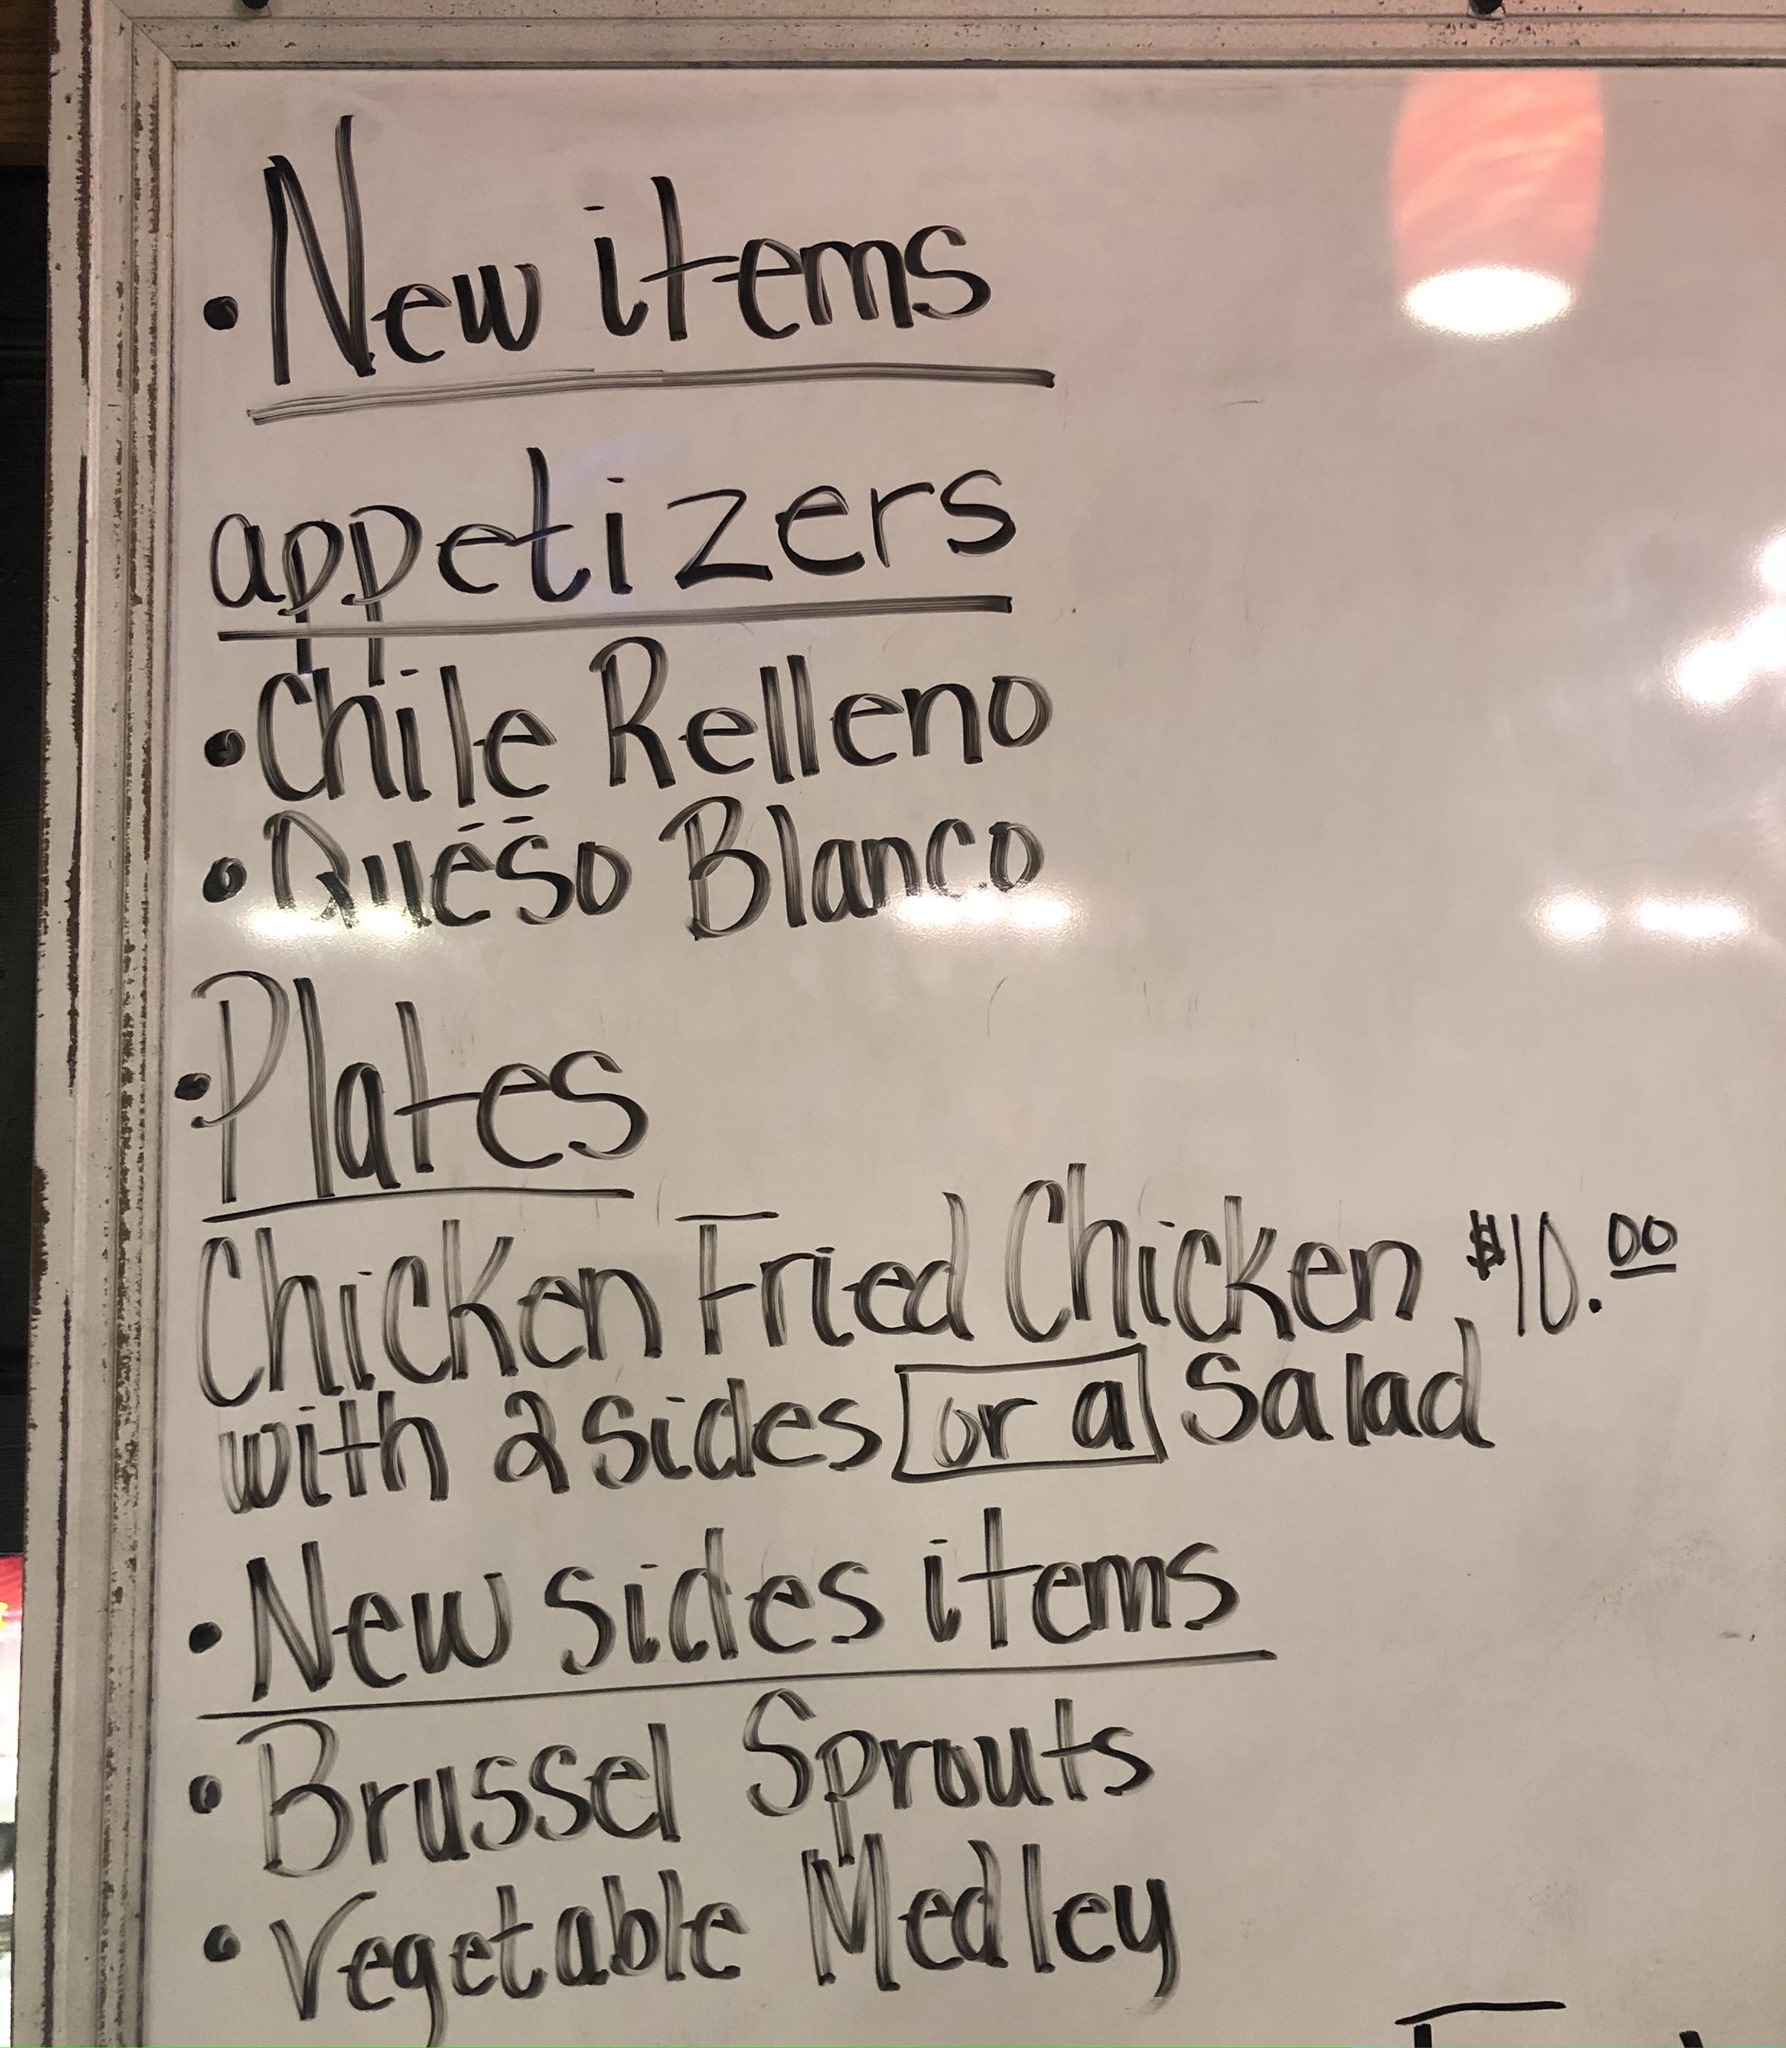 • New items
appetizers
• Chile Relleno
• Queso Blanco
• Plates
Chicken Fried Chicken $10.00
with 2 sides or a Salad
• New sides items
• Brussel Sprouts
• Vegetable Medley